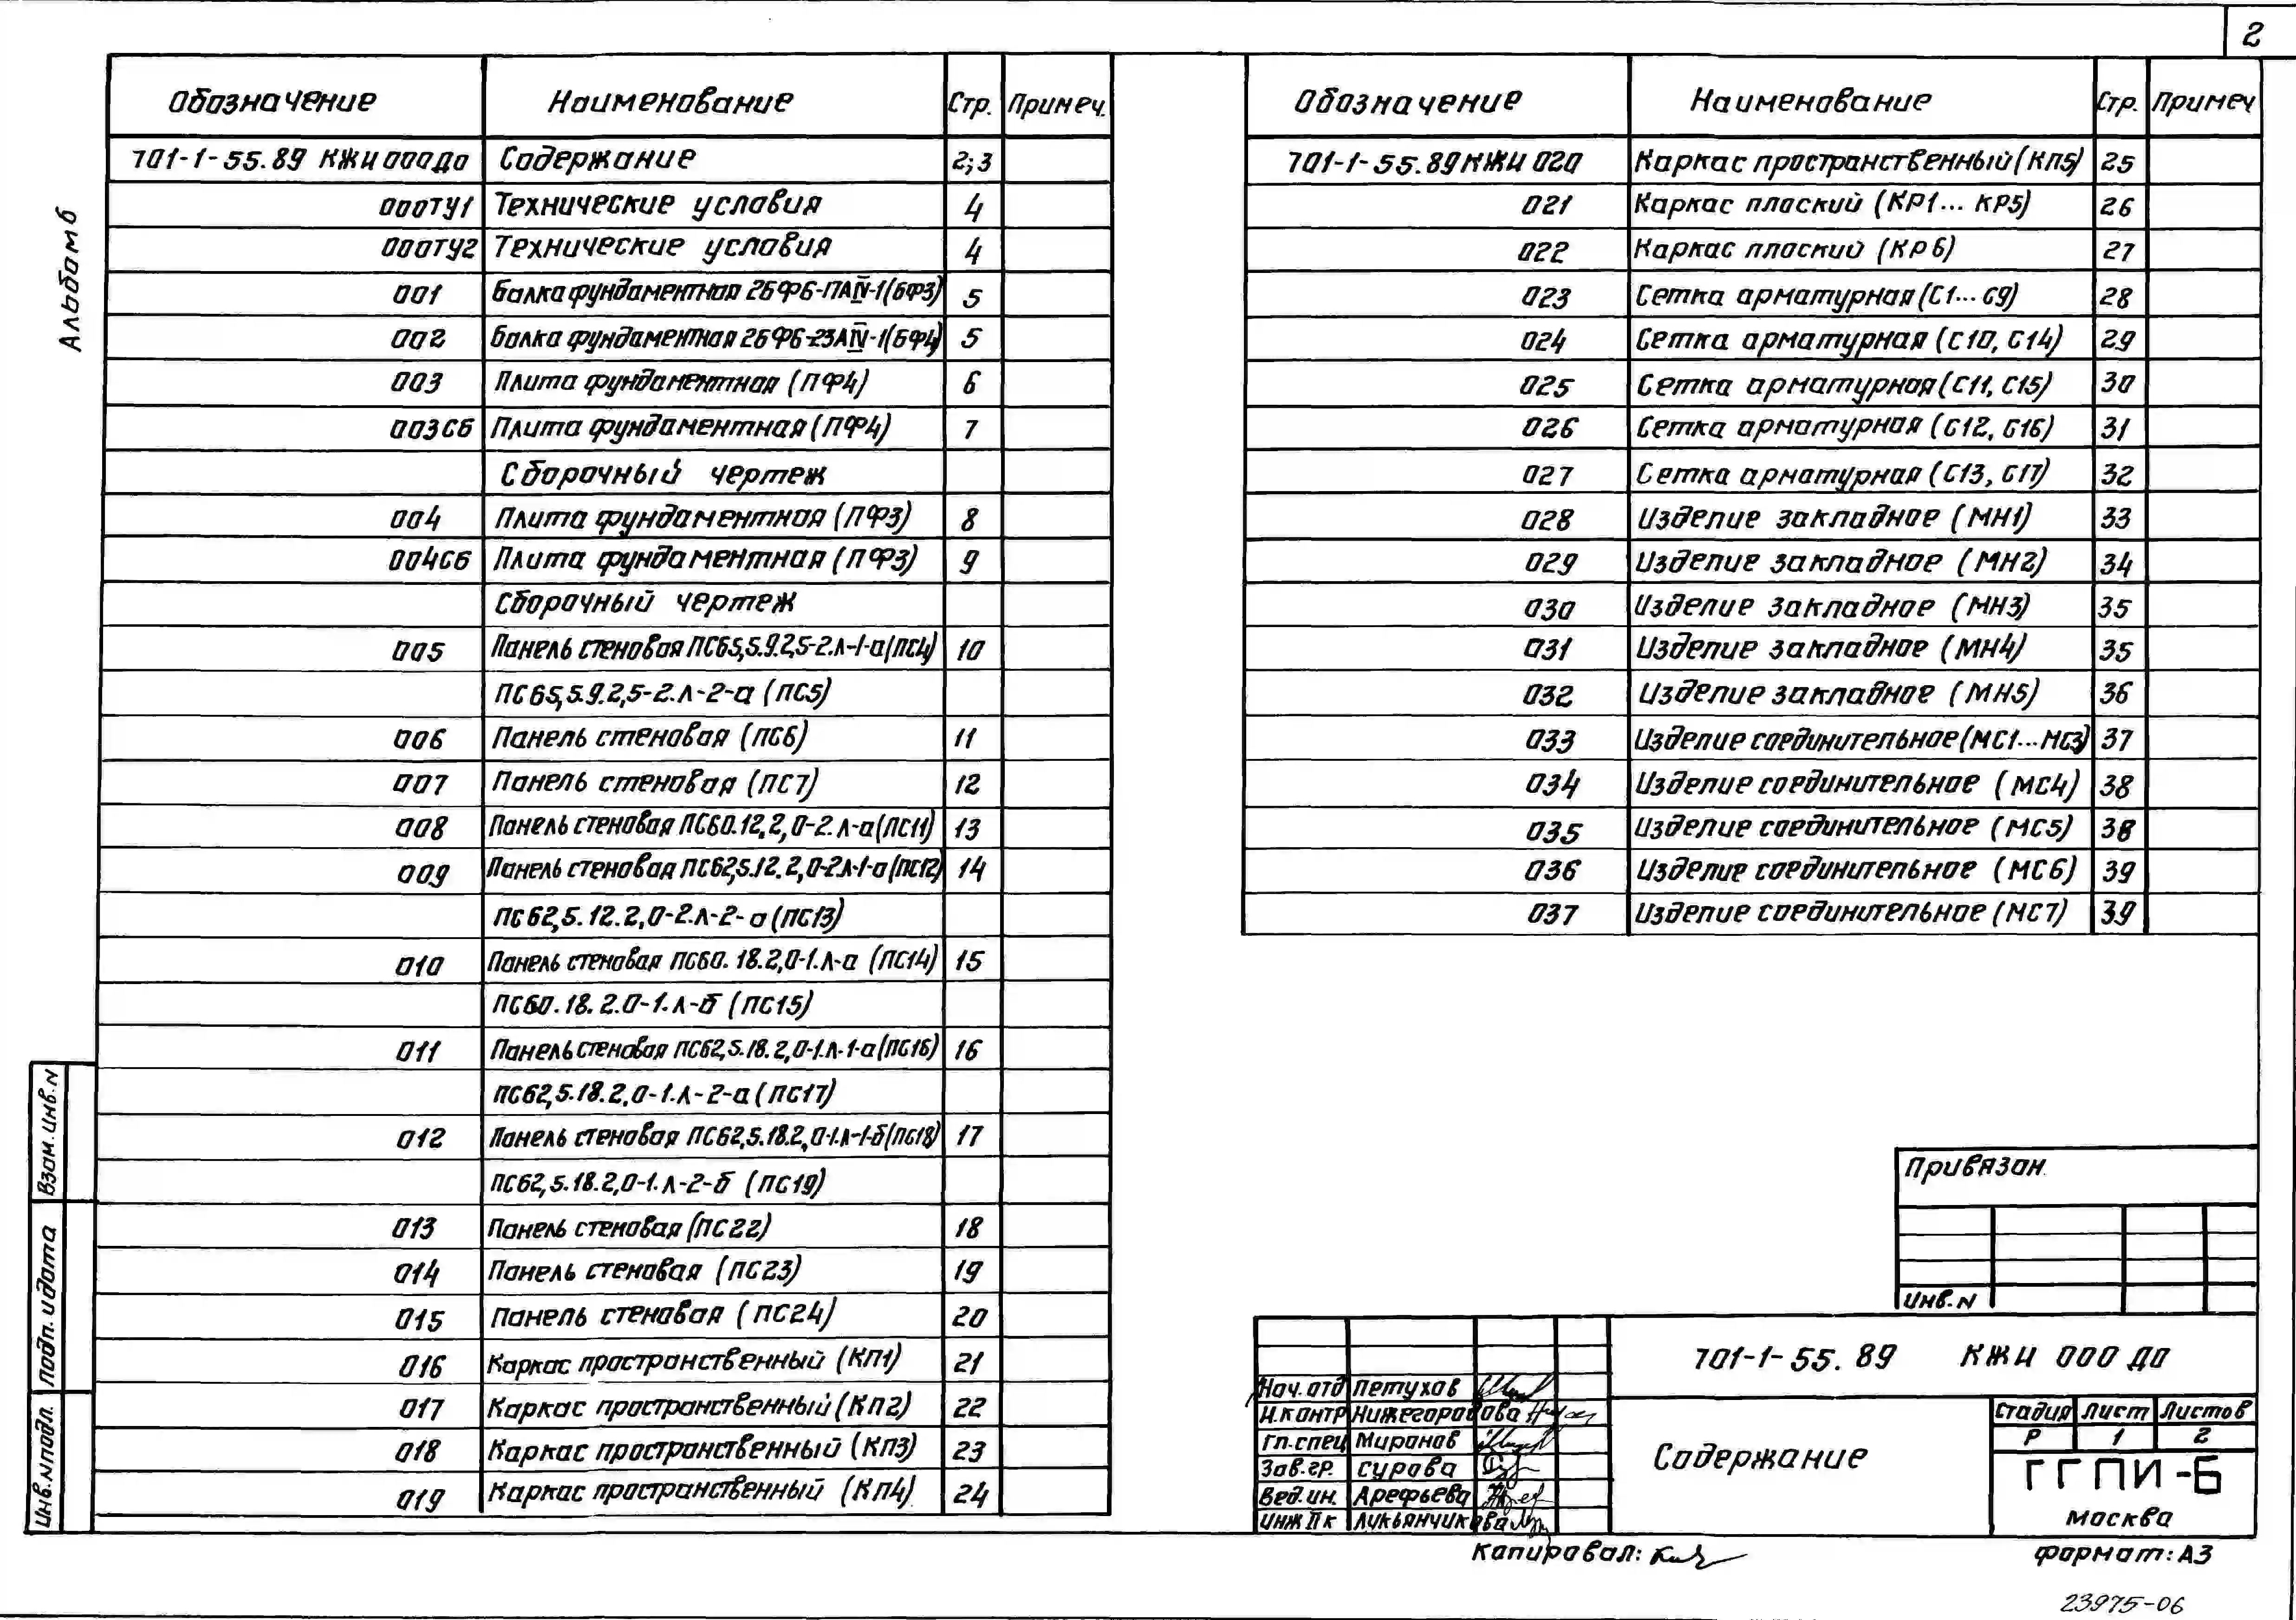 2
Альбом 6
Обозначение Наименование Стр. Примеч.
701-1-55.89 КЖИ 000ДО Содержание 2;3
000ТУ1 Технические условия 4
000ТУ2 Технические условия 4
001 Балка фундаментная 2БФ6-17АIV-1(БФ3) 5
002 Балка фундаментная 2БФ6-23АIV-1(БФ4) 5
003 Плита фундаментная (ПФ4) 6
003СБ Плита фундаментная (ПФ4) 7
Сборочный чертеж
004 Плита фундаментная (ПФ3) 8
004СБ Плита фундаментная (ПФ3) 9
Сборочный чертеж
005 Панель стеновая ПС65,5.9.2,5-2.Л-1-а(ПС4) 10
ПС65,5.9.2,5-2.Л-2-а (ПС5)
006 Панель стеновая (ПС6) 11
007 Панель стеновая (ПС7) 12
008 Панель стеновая ПС60.12.2,0-2.Л-а(ПС11) 13
009 Панель стеновая ПС62,5.12.2,0-2.Л-1-а(ПС12) 14
ПС62,5.12.2,0-2.Л-2-а(ПС13)
010 Панель стеновая ПС60.18.2,0-1.Л-а (ПС14) 15
ПС60.18.2.0-1.Л-б (ПС15)
011 Панель стеновая ПС62,5.18.2,0-1.Л-1-а(ПС16) 16
ПС62,5.18.2,0-1.Л-2-а(ПС17)
012 Панель стеновая ПС62,5.18.2,0-1.Л-1-б(ПС18) 17
ПС62,5.18.2,0-1.Л-2-б (ПС19)
013 Панель стеновая (ПС22) 18
014 Панель стеновая (ПС23) 19
015 Панель стеновая (ПС24) 20
016 Каркас пространственный (КП1) 21
017 Каркас пространственный (КП2) 22
018 Каркас пространственный (КП3) 23
019 Каркас пространственный (КП4) 24
Обозначение Наименование Стр. Примеч
701-1-55.89 КЖИ 020 Каркас пространственный (КП5) 25
021 Каркас плоский (КР1... КР5) 26
022 Каркас плоский (КР6) 27
023 Сетка арматурная (С1...С9) 28
024 Сетка арматурная (С10, С14) 29
025 Сетка арматурная (С11, С15) 30
026 Сетка арматурная (С12, С16) 31
027 Сетка арматурная (С13, С17) 32
028 Изделие закладное (МН1) 33
029 Изделие закладное (МН2) 34
030 Изделие закладное (МН3) 35
031 Изделие закладное (МН4) 35
032 Изделие закладное (МН5) 36
033 Изделие соединительное (МС1...МС3) 37
034 Изделие соединительное (МС4) 38
035 Изделие соединительное (МС5) 38
036 Изделие соединительное (МС6) 39
037 Изделие соединительное (МС7) 39
Взам.инв.N
Подп. и дата
Инв.N подл.
Привязан
Инв.N
701-1-55.89 КЖИ 000 ДО
Нач.отд Петухов
Н.контр Нижегородова
Гл.спец Миронов
Зав.гр. Сурова
Вед.ин. Арефьева
Инж IIк Лукьянчикова
Содержание
Стадия Лист Листов
Р 1 2
ГГПИ-Б
Москва
Копировал:
Формат: А3
23975-06